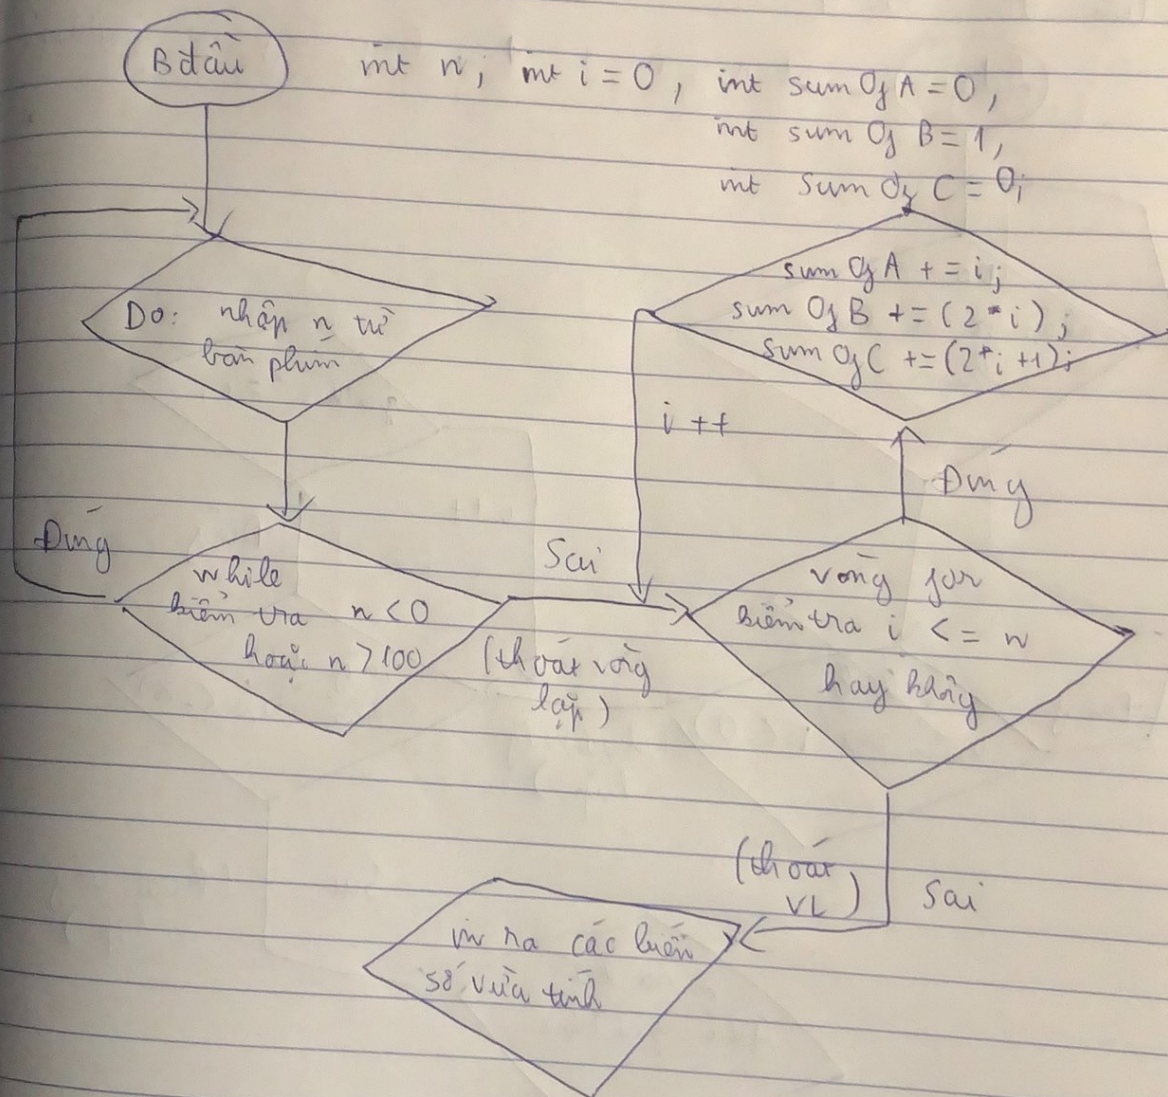 Bđầu
int n; int i = 0, int sum Of A = 0,
int sum Of B = 1,
int sum Of C = 0;
sum Of A += i;
sum Of B += (2*i);
sum Of C += (2*i +1);
Do: nhập n từ
bàn phím
i ++
Đúng
Đúng
while
kiểm tra n < 0
hoặc n > 100
Sai
(thoát vòng
lặp)
vòng for
kiểm tra i <= n
hay không
(thoát
VL)
Sai
in ra các biến
số vừa tính